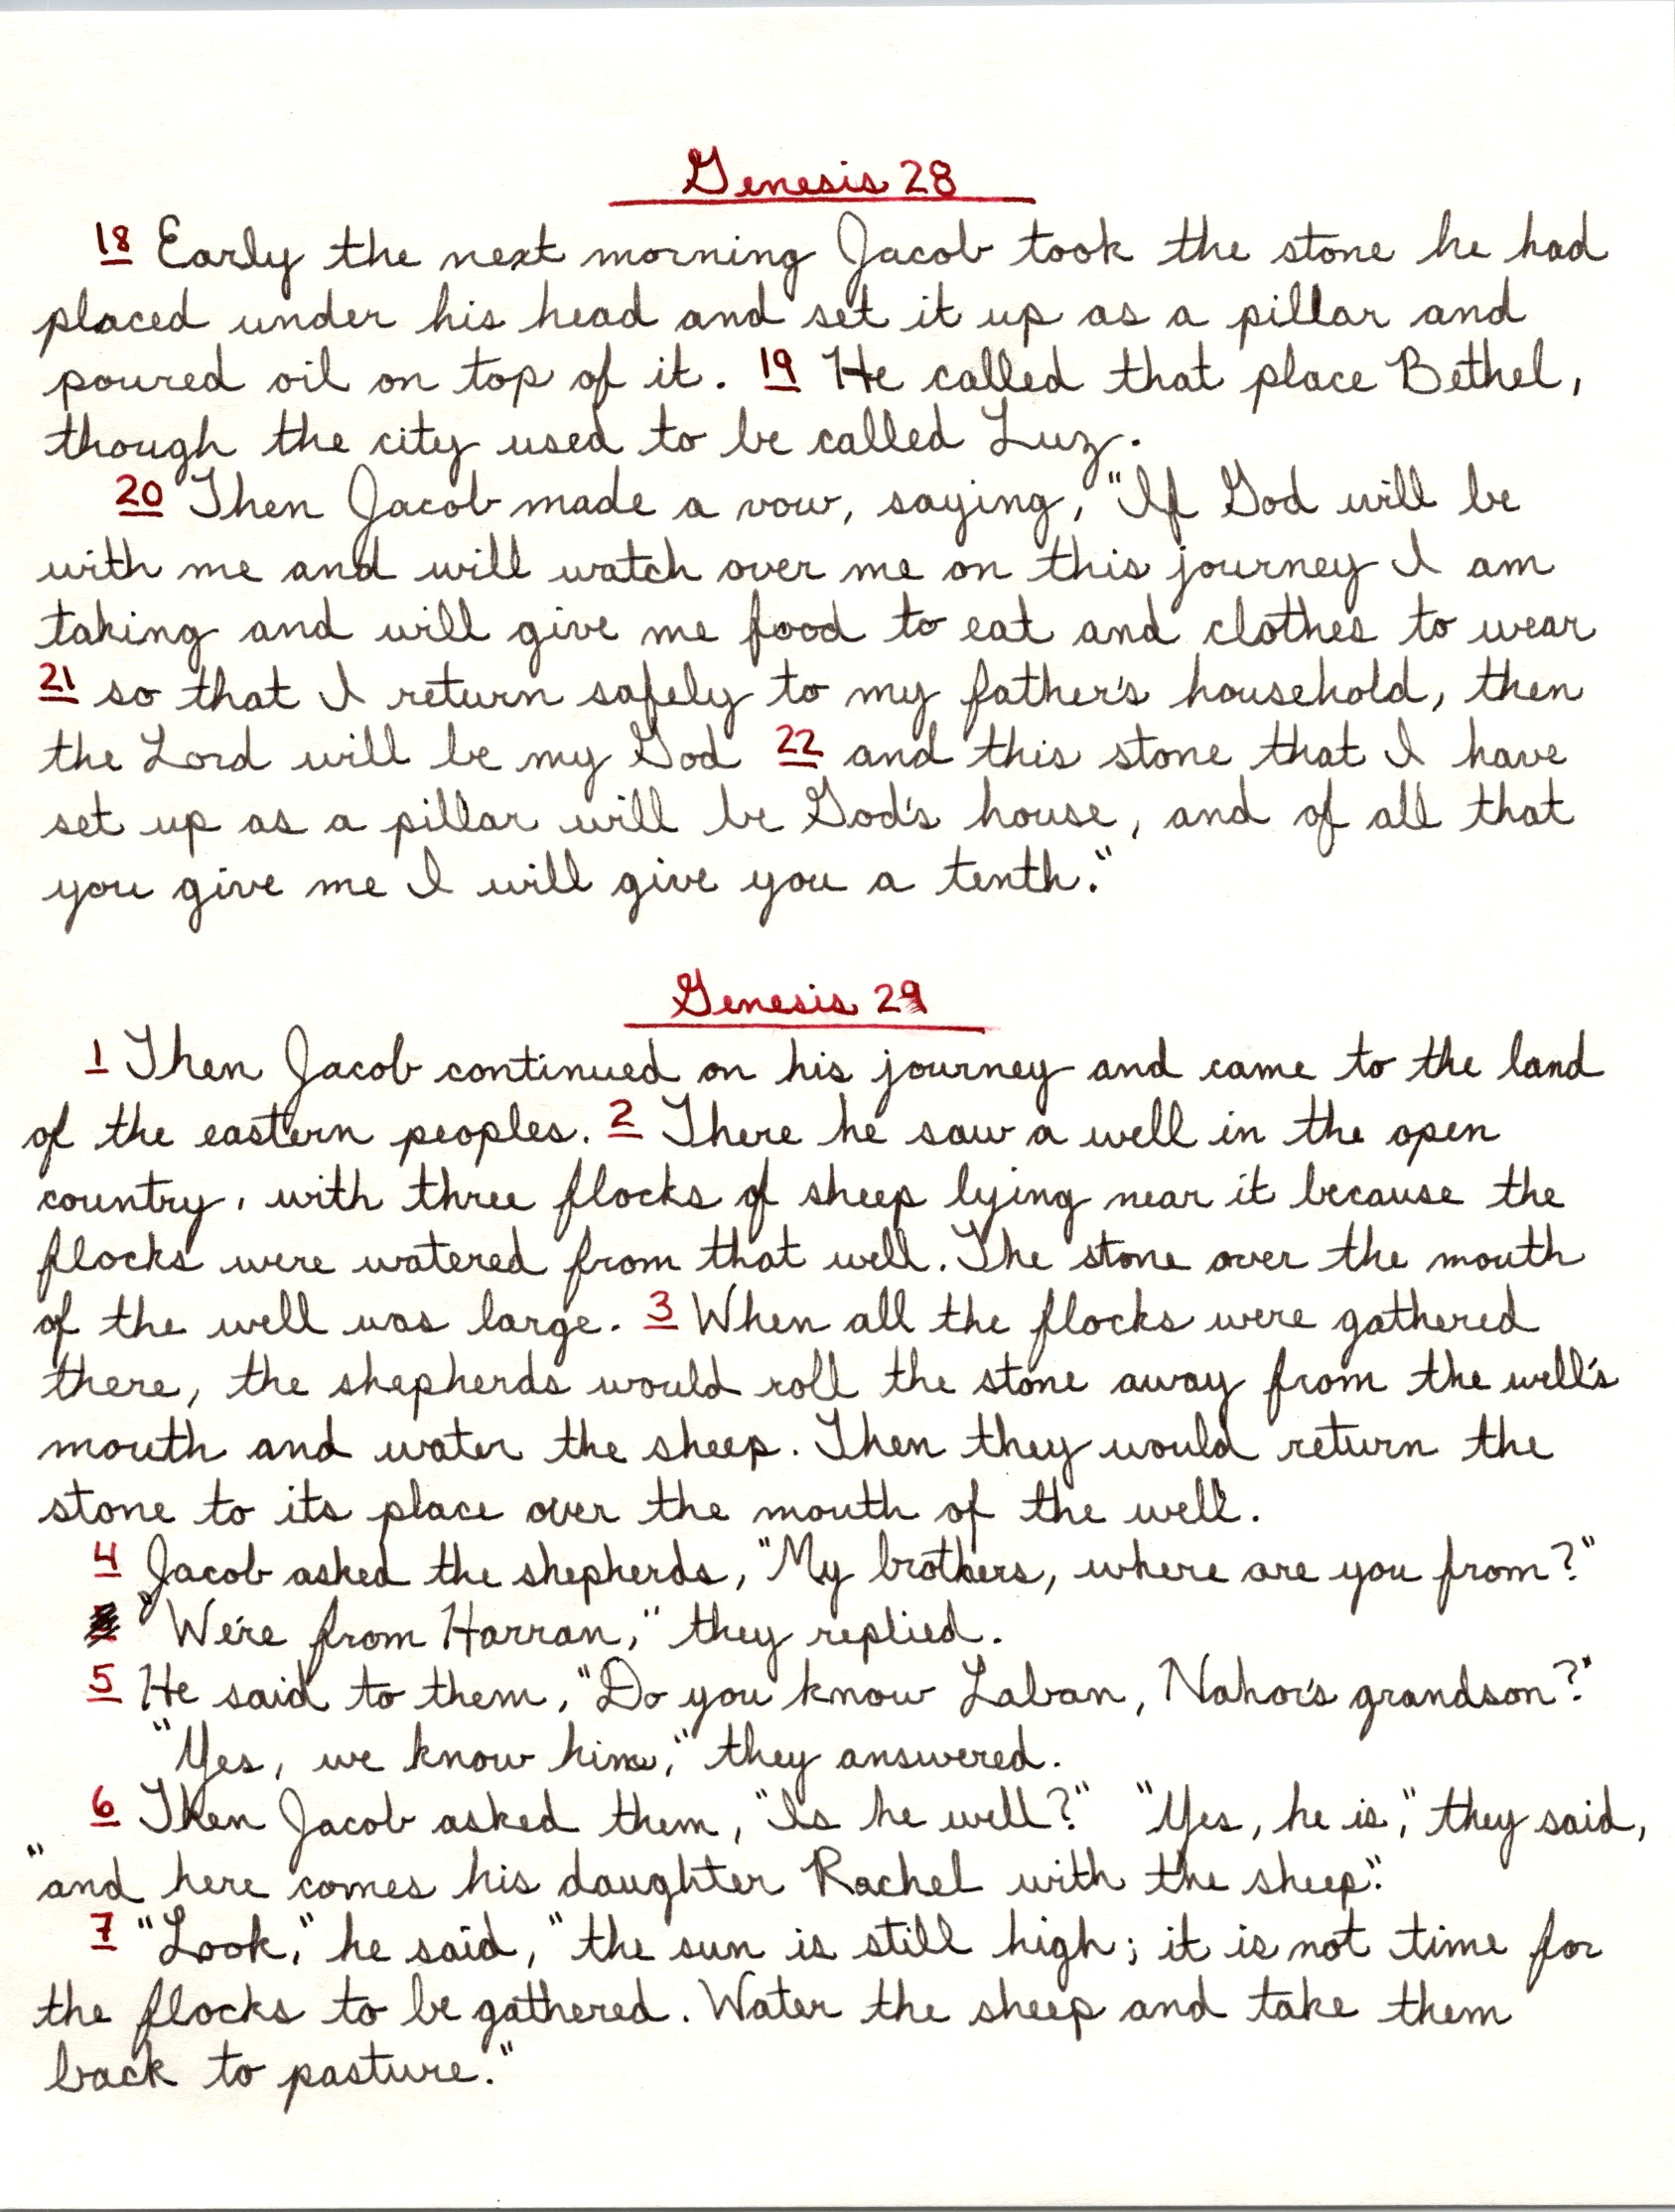 Genesis 28
18 Early the next morning Jacob took the stone he had
placed under his head and set it up as a pillar and
poured oil on top of it. 19 He called that place Bethel,
though the city used to be called Luz.
20 Then Jacob made a vow, saying, "If God will be
with me and will watch over me on this journey I am
taking and will give me food to eat and clothes to wear
21 so that I return safely to my father's household, then
the Lord will be my God 22 and this stone that I have
set up as a pillar will be God's house, and of all that
you give me I will give you a tenth."
Genesis 29
1 Then Jacob continued on his journey and came to the land
of the eastern peoples. 2 There he saw a well in the open
country, with three flocks of sheep lying near it because the
flocks were watered from that well. The stone over the mouth
of the well was large. 3 When all the flocks were gathered
there, the shepherds would roll the stone away from the well's
mouth and water the sheep. Then they would return the
stone to its place over the mouth of the well.
4 Jacob asked the shepherds, "My brothers, where are you from?"
"We're from Harran," they replied.
5 He said to them, "Do you know Laban, Nahor's grandson?"
"Yes, we know him," they answered.
6 Then Jacob asked them, "Is he well?" "Yes, he is," they said,
"and here comes his daughter Rachel with the sheep."
7 "Look," he said, "the sun is still high; it is not time for
the flocks to be gathered. Water the sheep and take them
back to pasture."